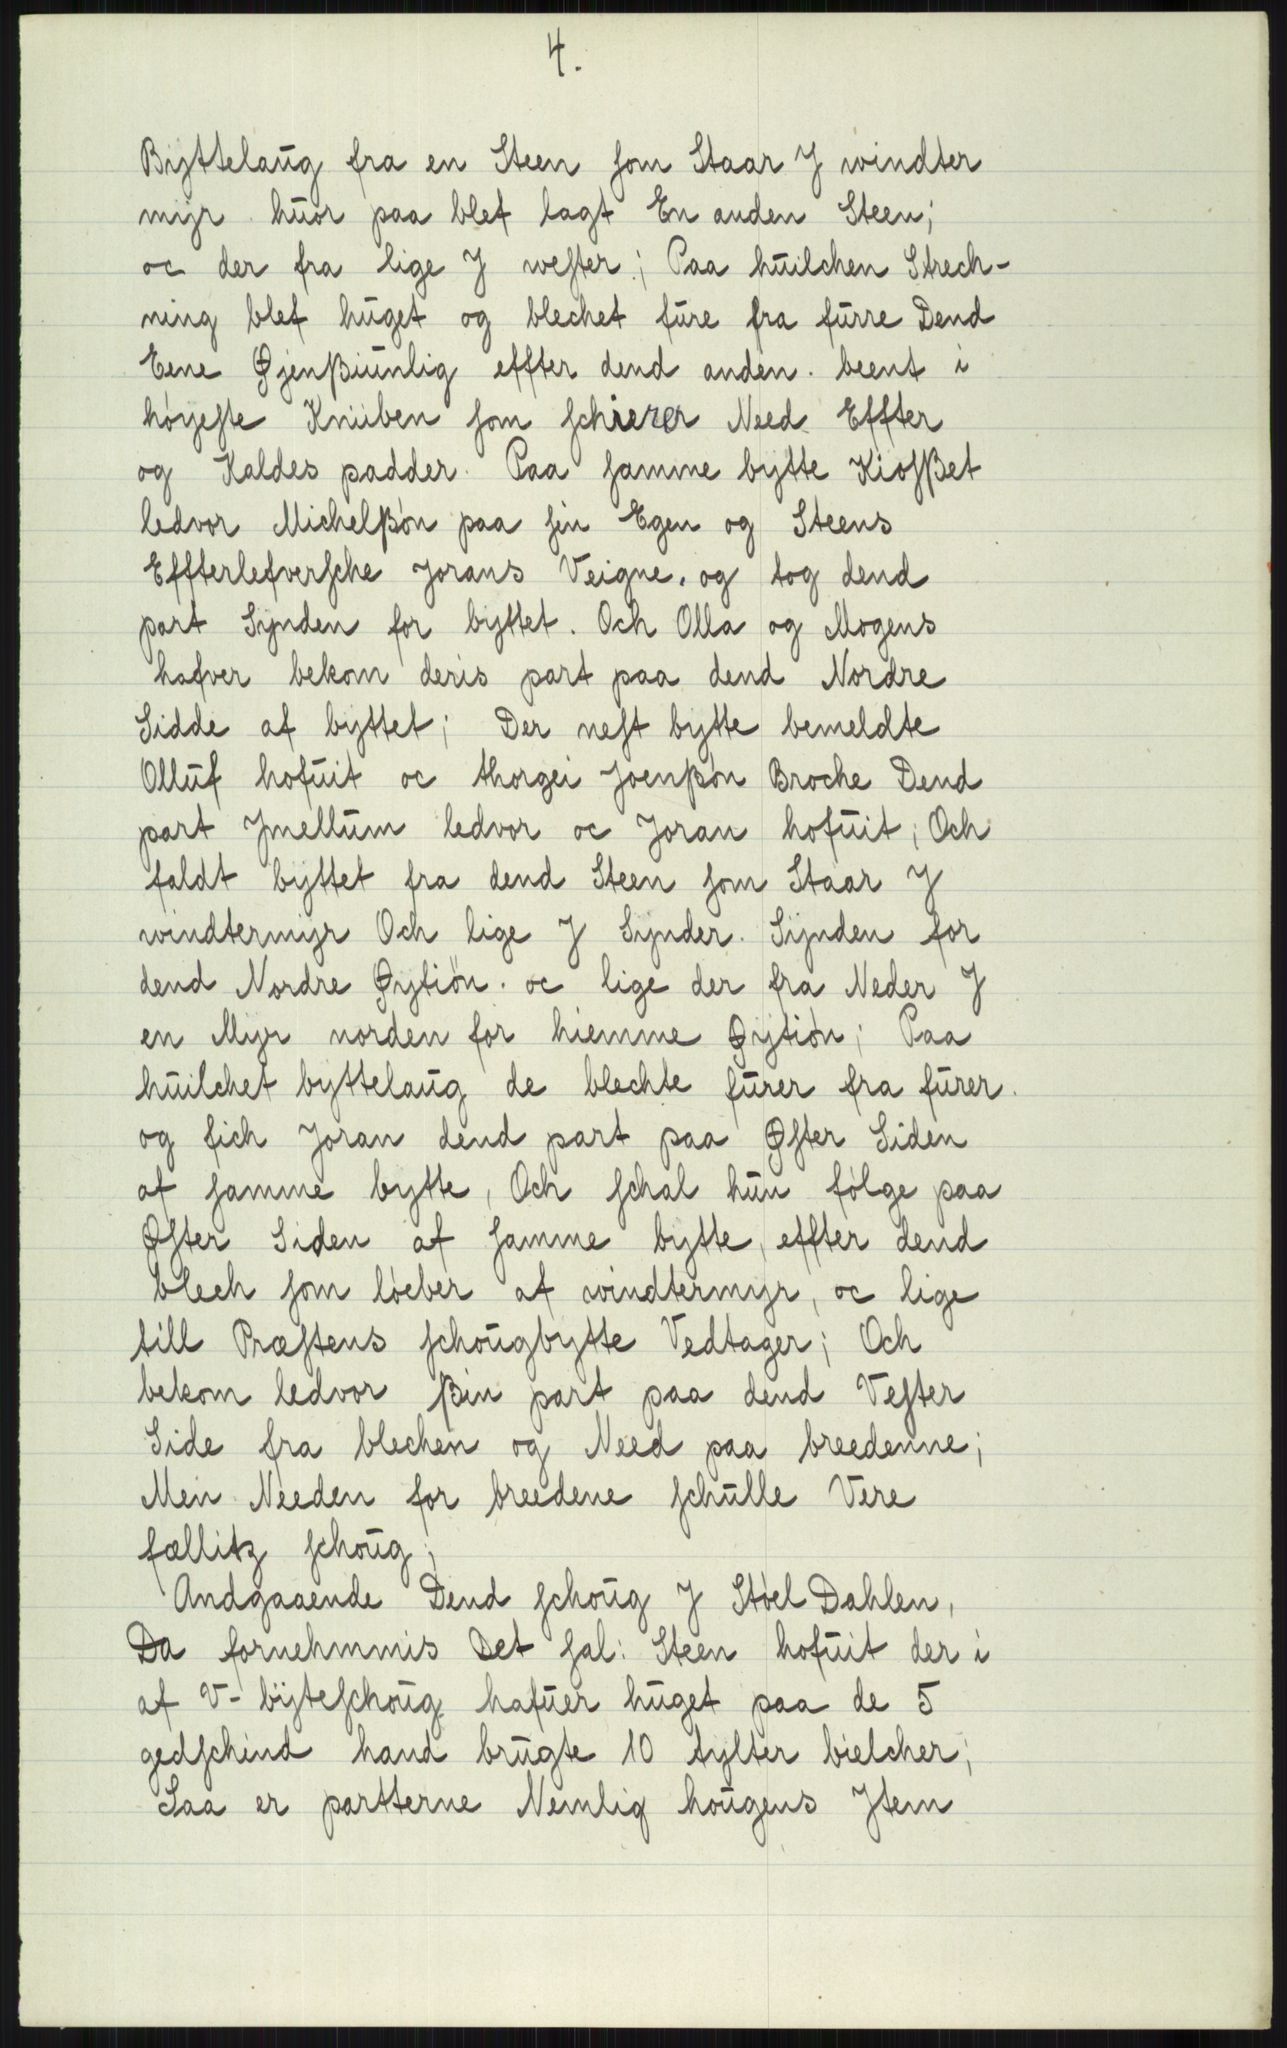 4.
Byttelaug fra en Steen som Staar J windter
myr huor paa blef lagt En anden Steen;
oc der fra lige J wester; Paa huilchen Strech-
ning blef huget og blechet fure fra furre Dend
Eene Øjenßiunlig effter dend anden. beent i
höyeste Knuben som schierer Need Effter
og Kaldes padder. Paa samme bytte Kiosßet
ledvor Michelßön paa sin Egen og Steens
Effterlefversche Jorans Veigne. og tog dend
part Synden for byttet. Och Olla og Mogens
hafver bekom deris part paa dend Nordre
Sidde af byttet; Der nest bytte bemeldte
Olluf hofuit oc thorgei Joenßön Broche Dend
part Jmellum ledvor oc Joran hofuit; Och
faldt byttet fra dend Steen som Staar J
windtermyr Och lige J Synder. Synden for
dend Nordre Øytiön. oc lige der fra Neder J
en Myr norden for hiemme Øytiön; Paa
huilchet byttelaug de blechte furer fra furer.
og fich Joran dend part paa Øster Siden
af samme bytte, Och schal hun fölge paa
Øster Siden af samme bytte, effter dend
blech som löeber af windtermyr, oc lige
till Præstens schougbytte Vedtager; Och
bekom ledvor ßin part paa dend Vester
Side fra blechen og Need paa breedenne;
Men Needen for breedene schulle Vere
fællitz schoug;
Andgaaende Dend schoug J Stöel Dahlen,
Da fornehmmis Det sal: Steen hofuit der i
af V- byteschoug hafuer huget paa de 5
gedschind hand brugte 10 tylter bielcher;
Saa er partterne Nemlig hougens Jtem